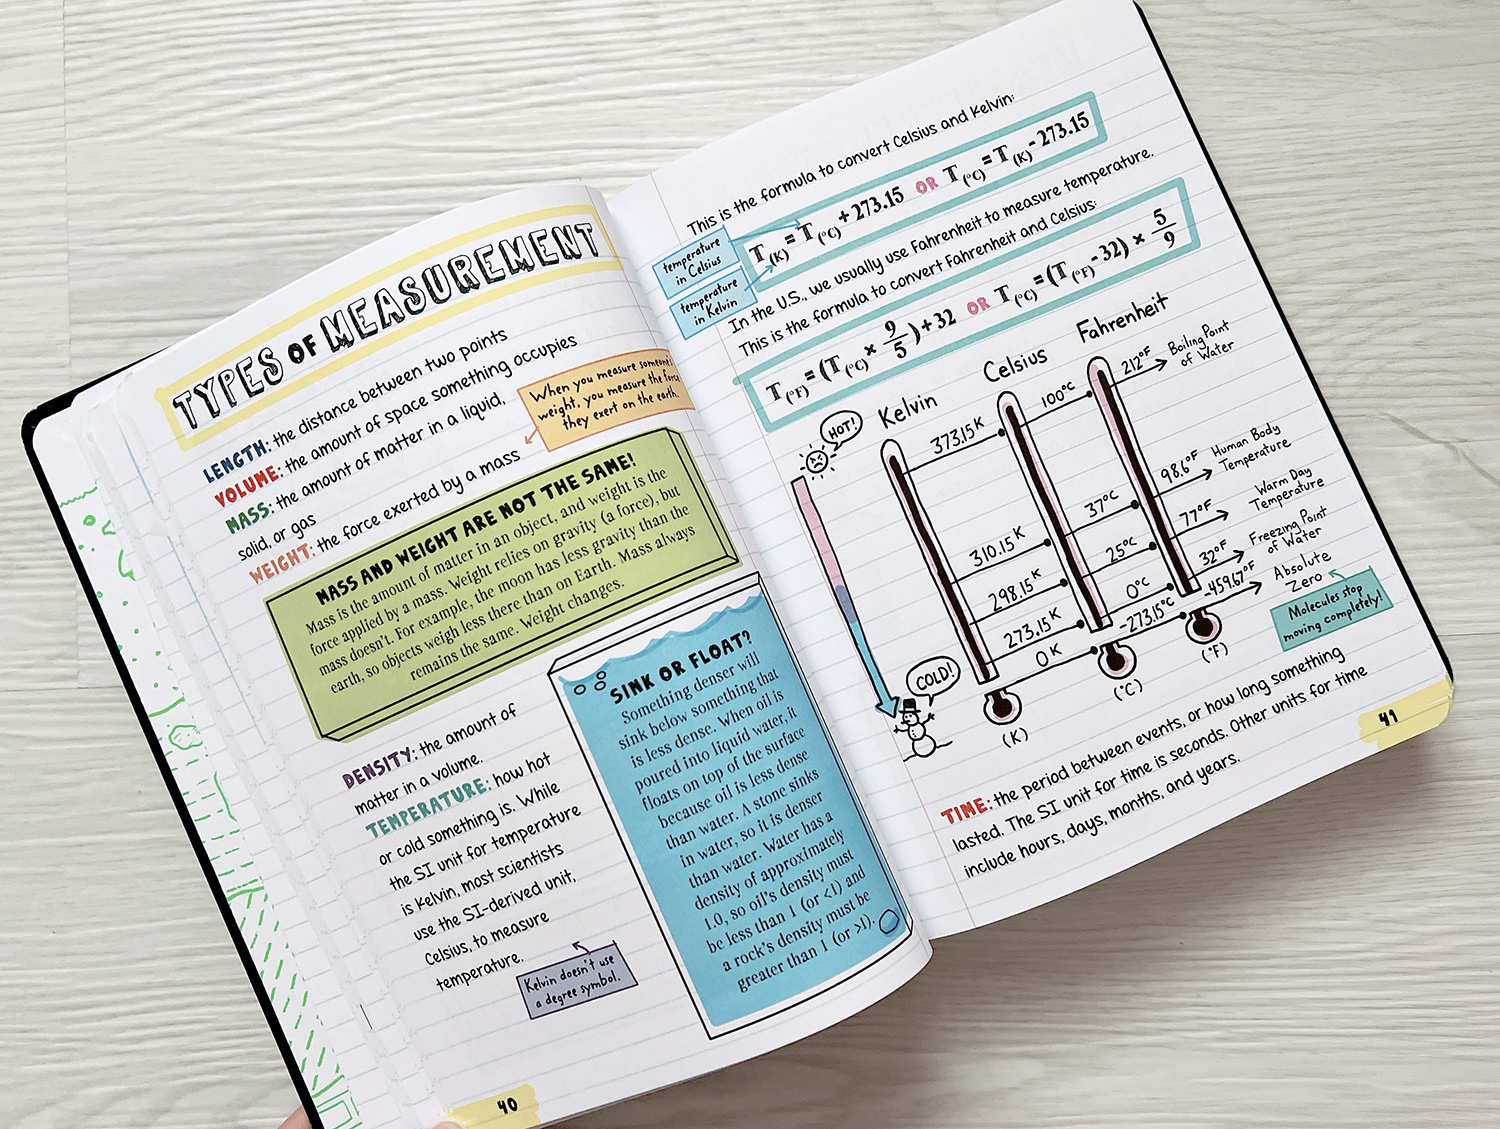 TYPES OF MEASUREMENT
LENGTH: the distance between two points
VOLUME: the amount of space something occupies
MASS: the amount of matter in a liquid,
solid, or gas
WEIGHT: the force exerted by a mass
When you measure someone's
weight, you measure the force
they exert on the earth.
MASS AND WEIGHT ARE NOT THE SAME!
Mass is the amount of matter in an object, and weight is the
force applied by a mass. Weight relies on gravity (a force), but
mass doesn't. For example, the moon has less gravity than the
earth, so objects weigh less there than on Earth. Mass always
remains the same. Weight changes.
DENSITY: the amount of
matter in a volume.
TEMPERATURE: how hot
or cold something is. While
the SI unit for temperature
is Kelvin, most scientists
use the SI-derived unit,
Celsius, to measure
temperature.
Kelvin doesn't use
a degree symbol.
SINK OR FLOAT?
Something denser will
sink below something that
is less dense. When oil is
poured into liquid water, it
floats on top of the surface
because oil is less dense
than water. A stone sinks
in water, so it is denser
than water. Water has a
density of approximately
1.0, so oil's density must
be less than 1 (or <1) and
a rock's density must be
greater than 1 (or >1).
40
This is the formula to convert Celsius and Kelvin:
T(K) = T(°C) + 273.15 OR T(°C) = T(K) - 273.15
temperature
in Celsius
temperature
in Kelvin
In the U.S., we usually use Fahrenheit to measure temperature.
This is the formula to convert Fahrenheit and Celsius:
T(°F) = (T(°C) × 9/5) + 32 OR T(°C) = (T(°F) - 32) × 5/9
HOT!
COLD!
Kelvin
Celsius
Fahrenheit
373.15 K
100°C
212°F
Boiling Point
of Water
310.15 K
37°C
98.6°F
Human Body
Temperature
298.15 K
25°C
77°F
Warm Day
Temperature
273.15 K
0°C
32°F
Freezing Point
of Water
0 K
-273.15°C
-459.67°F
Absolute
Zero
Molecules stop
moving completely!
(K)
(°C)
(°F)
TIME: the period between events, or how long something
lasted. The SI unit for time is seconds. Other units for time
include hours, days, months, and years.
41